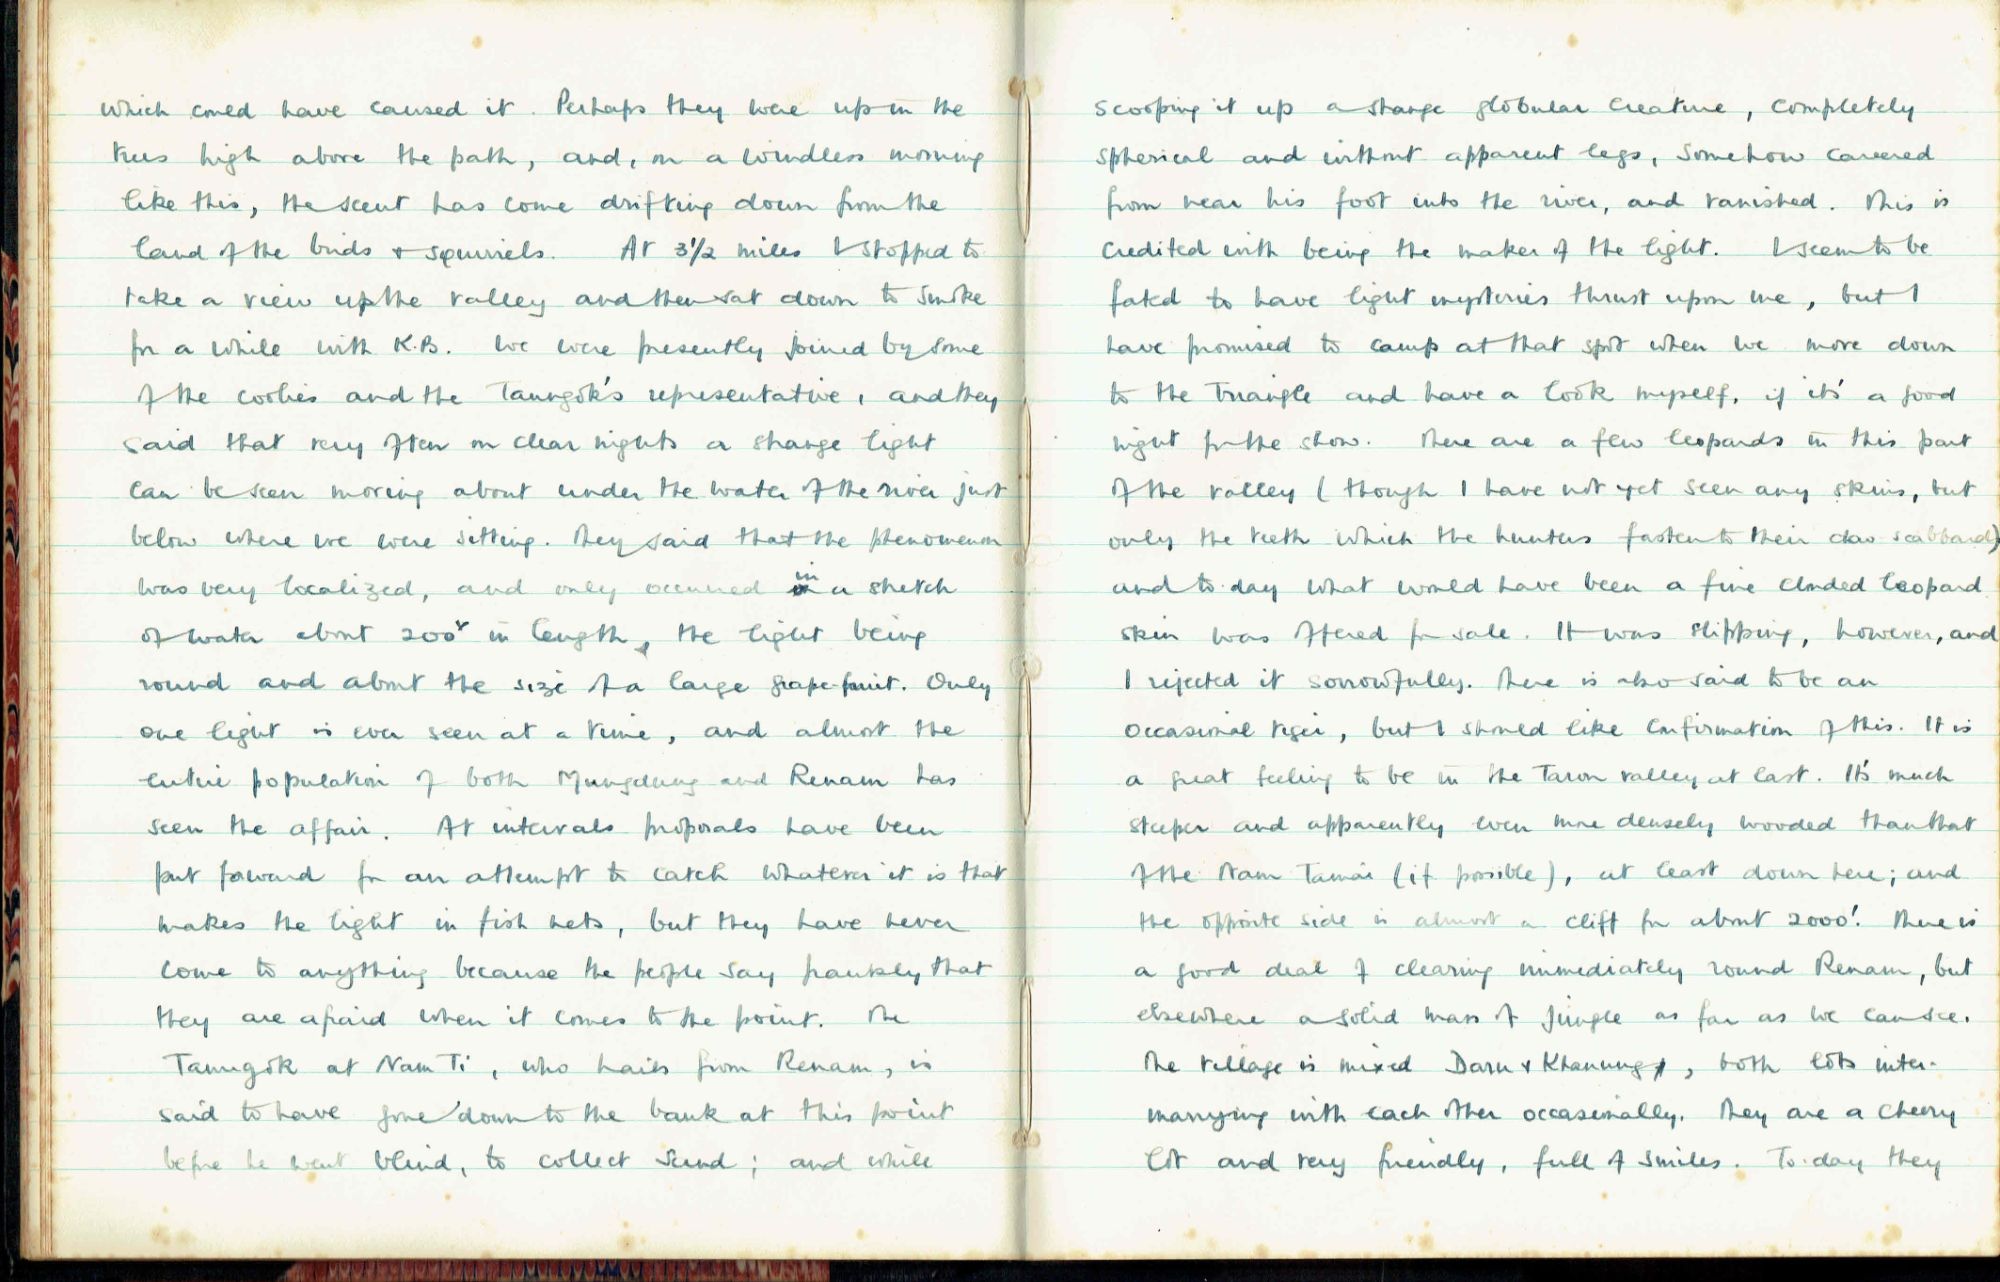 which could have caused it. Perhaps they were up in the
trees high above the path, and, on a windless morning
like this, the scent has come drifting down from the
land of the birds & squirrels. At 3½ miles I stopped to
take a view up the valley and then sat down to smoke
for a while with K.B. We were presently joined by some
of the coolies and the Taungok's representative, and they
said that very often on clear nights a strange light
can be seen moving about under the water of the river just
below where we were sitting. They said that the phenomenon
was very localized, and only occurred in a stretch
of water about 200ʸ in length, the light being
round and about the size of a large grape-fruit. Only
one light is ever seen at a time, and almost the
entire population of both Mungdung and Renam has
seen the affair. At intervals proposals have been
put forward for an attempt to catch whatever it is that
makes the light in fish nets, but they have never
come to anything because the people say frankly that
they are afraid when it comes to the point. The
Taungok at Nam Ti, who hails from Renam, is
said to have gone down to the bank at this point
before he went blind, to collect sand; and while
scooping it up a strange globular creature, completely
spherical and without apparent legs, somehow careered
from near his foot into the river, and vanished. This is
credited with being the maker of the light. I seem to be
fated to have light mysteries thrust upon me, but I
have promised to camp at that spot when we move down
to the Triangle and have a look myself, if it's a good
night for the show. There are a few leopards in this part
of the valley (though I have not yet seen any skins, but
only the teeth which the hunters fasten to their dao scabbard)
and to-day what would have been a fine clouded leopard
skin was offered for sale. It was slipping, however, and
I rejected it sorrowfully. There is also said to be an
occasional tiger, but I should like confirmation of this. It is
a great feeling to be in the Taron valley at last. It's much
steeper and apparently even more densely wooded than that
of the Nam Tamai (if possible), at least down here; and
the opposite side is almost a cliff for about 2000'. There is
a good deal of clearing immediately round Renam, but
elsewhere a solid mass of jungle as far as we can see.
The village is mixed Daru & Khanung, both lots inter-
marrying with each other occasionally. They are a cheery
lot and very friendly, full of smiles. To-day they